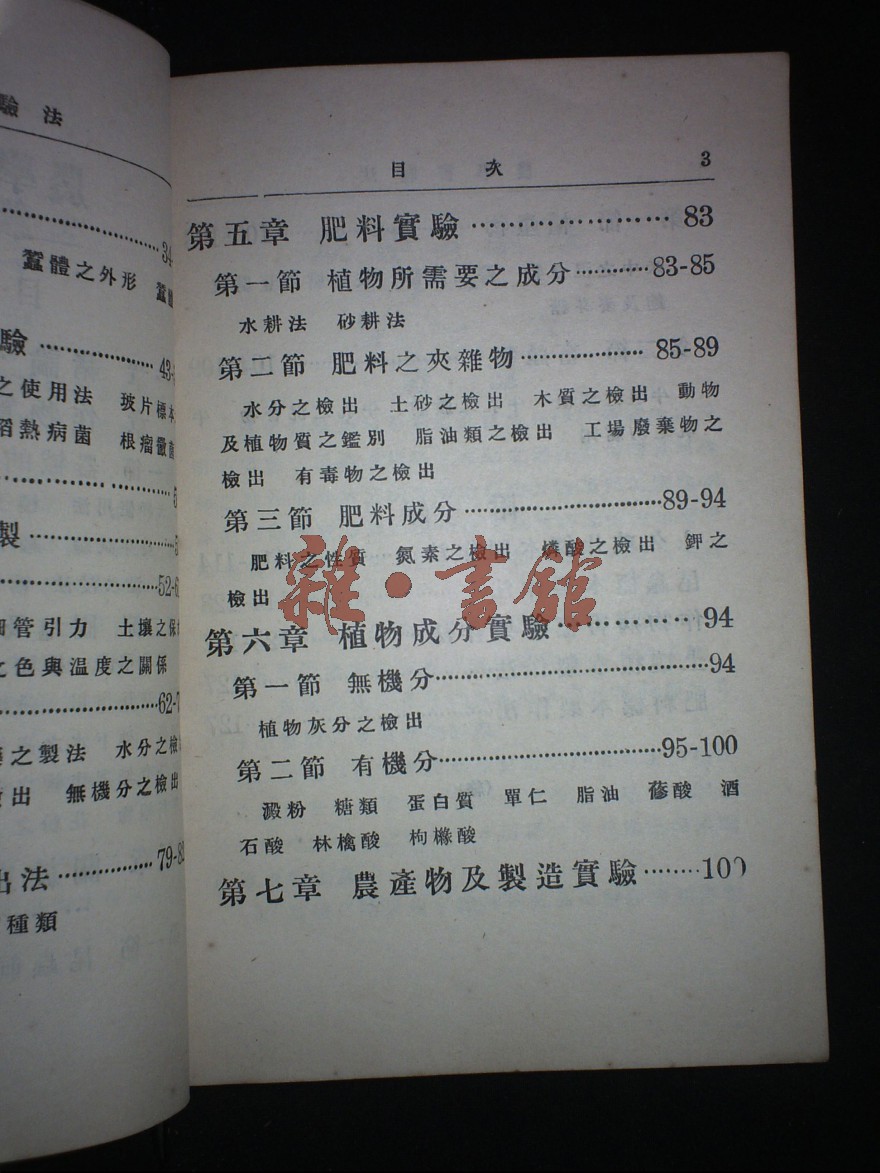 驗法
34
蠶體之外形
驗 43-
之使用法 玻片標本
稻熱病菌 根瘤黴菌
5
製 5
52-6
細管引力 土壤之保
之色與溫度之關係
62-7
之製法 水分之檢
出 無機分之檢出
79-8
出法
種類
目次 3
第五章 肥料實驗 83
第一節 植物所需要之成分 83-85
水耕法 砂耕法
第二節 肥料之夾雜物 85-89
水分之檢出 土砂之檢出 木質之檢出 動物
及植物質之鑑別 脂油類之檢出 工場廢棄物之
檢出 有毒物之檢出
第三節 肥料成分 89-94
肥料之性質 氮素之檢出 燐酸之檢出 鉀之
檢出
雜·書館
第六章 植物成分實驗 94
第一節 無機分 94
植物灰分之檢出
第二節 有機分 95-100
澱粉 糖類 蛋白質 單仁 脂油 蓚酸 酒
石酸 林檎酸 枸櫞酸
第七章 農產物及製造實驗 100